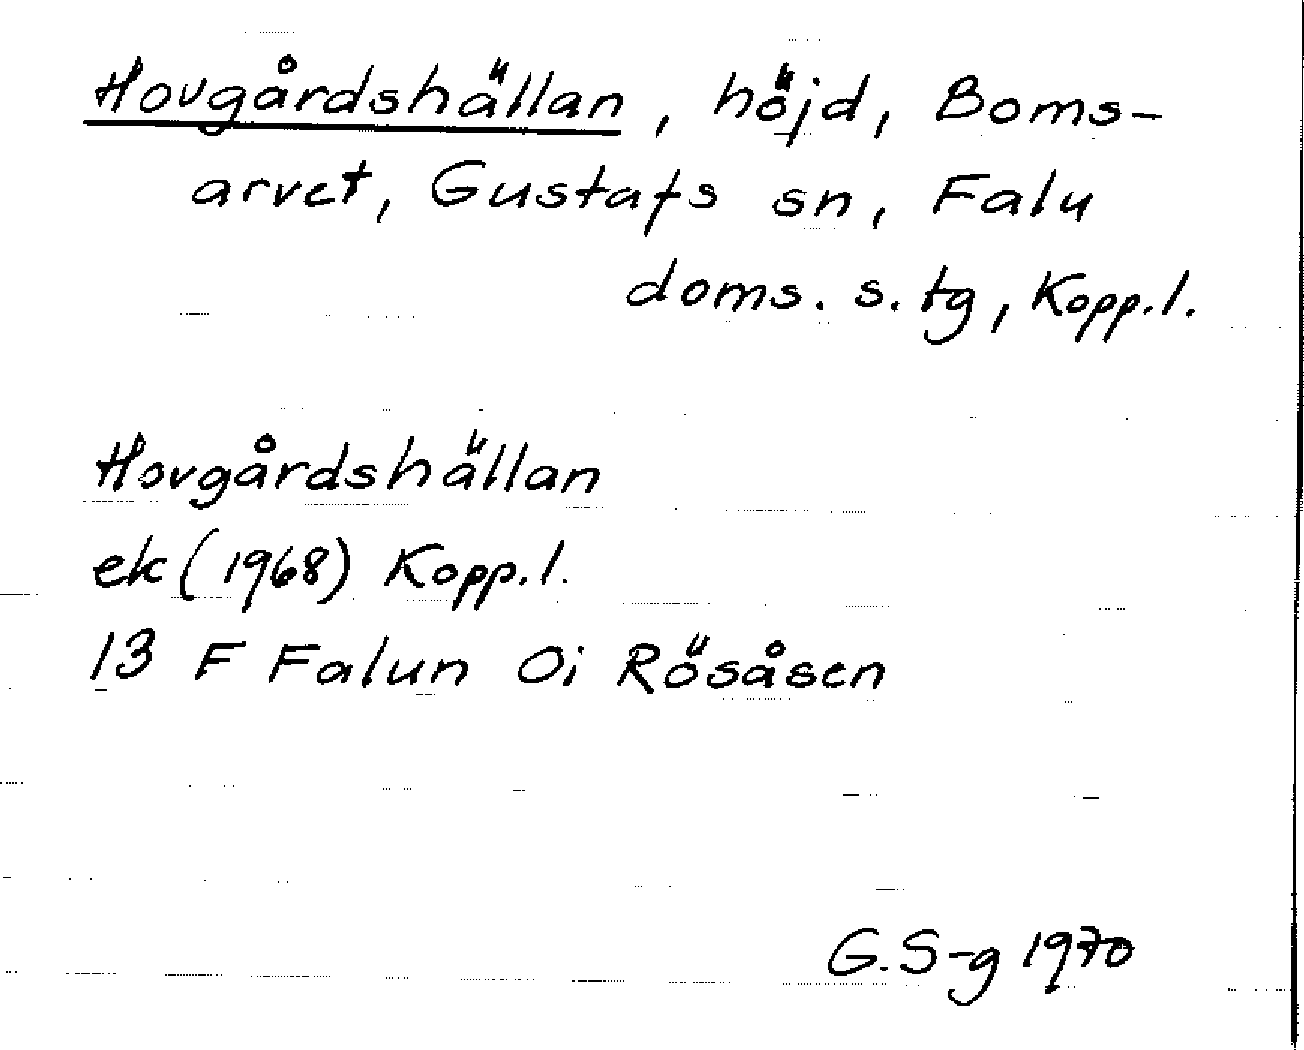 Hovgårdshällan, höjd, Boms-
arvet, Gustafs sn, Falu
doms. s. tg, Kopp. l.
Hovgårdshällan
ek (1968) Kopp. l.
13 F Falun 0i Rösåsen
G. S-g 1970